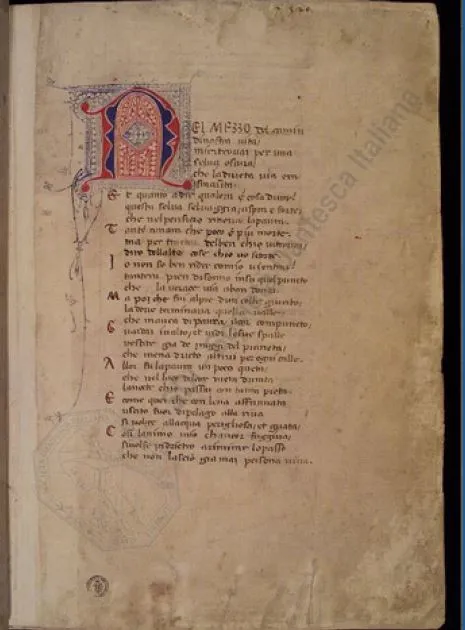 NEL MEZZO del camin
di nostra vita/
mi ritrovai per una
selva oscura/
che la diricta via era
smarrita/
E t quanto adir qualera e cosa dura
questa selva selvaggia/ aspra e forte/
che nel pensier rinova la paura.
T ante amara che poco e piu morte.
ma per tractar delben chio vi trovai/
diro dellaltre cose chio vo scorte
I o non so ben ridir comio ventrai
tantera pien di sonno in su quel puncto
che la verace via abandonai.
M a poi che fui alpie dun colle giunto/
la dove terminava quella valle
che mavea di paura il cor compuncto/
G uardai in alto/ et vidi le sue spalle
vestite gia de raggi del pianeta/
che mena dricto altrui per ogni calle.
A llor fu la paura un poco queta/
che nel lago del cor mera durata
la nocte chio passai con tanta pieta.
E come quei che con lena affannata
uscito fuor di pelago alla riva
si volge allacqua perigliosa/ et guata/
C osi lanimo mio chancor fuggiva/
si volse indietro a rimirar lo passo
che non lascio gia mai persona viva.
Dantesca Italiana